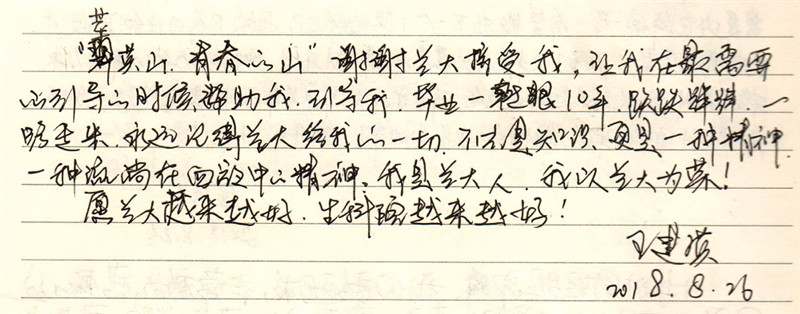 "萃英山.青春的山"谢谢兰大接受我,让我在最需要
的引导的时候帮助我.引导我.毕业一眨眼10年.跌跌绊绊.一
路走来.永远记得兰大给我的一切.不光是知识、更是一种精神.
一种流淌在血液中的精神.我是兰大人.我以兰大为荣!
愿兰大越来越好.生科院越来越好!
王建
2018.8.26